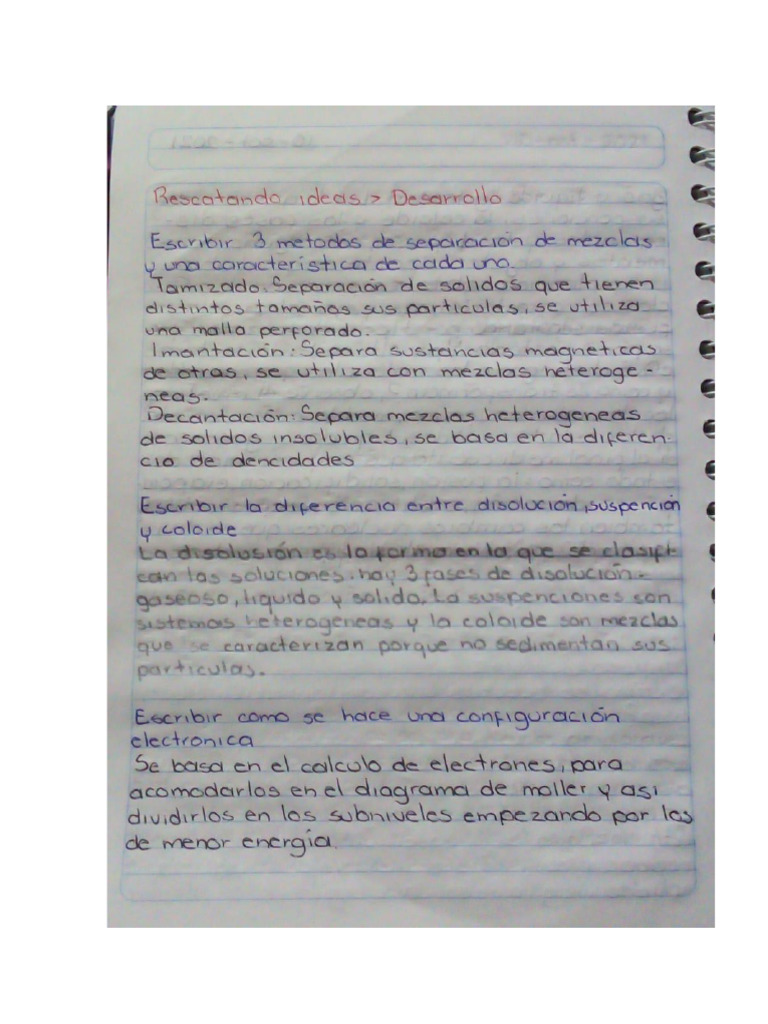 Rescatando ideas > Desarrollo
Escribir 3 metodos de separación de mezclas
y una caracteristica de cada uno.
Tamizado: Separación de solidos que tienen
distintos tamaños sus particulas, se utiliza
una malla perforado.
Imantación: Separa sustancias magneticas
de otras, se utiliza con mezclas heteroge-
neas.
Decantación: Separa mezclas heterogeneas
de solidos insolubles, se basa en la diferen-
cia de dencidades
Escribir la diferencia entre disolución, suspención
y coloide
La disolusión es la forma en la que se clasifi-
can las soluciones. hay 3 fases de disolución.
gaseoso, liquido y solido. La suspenciones son
sistemas heterogeneas y la coloide son mezclas
que se caracterizan porque no sedimentan sus
particulas.
Escribir como se hace una configuración
electronica
Se basa en el calculo de electrones, para
acomodarlos en el diagrama de moller y asi
dividirlos en los subniveles empezando por los
de menor energía.